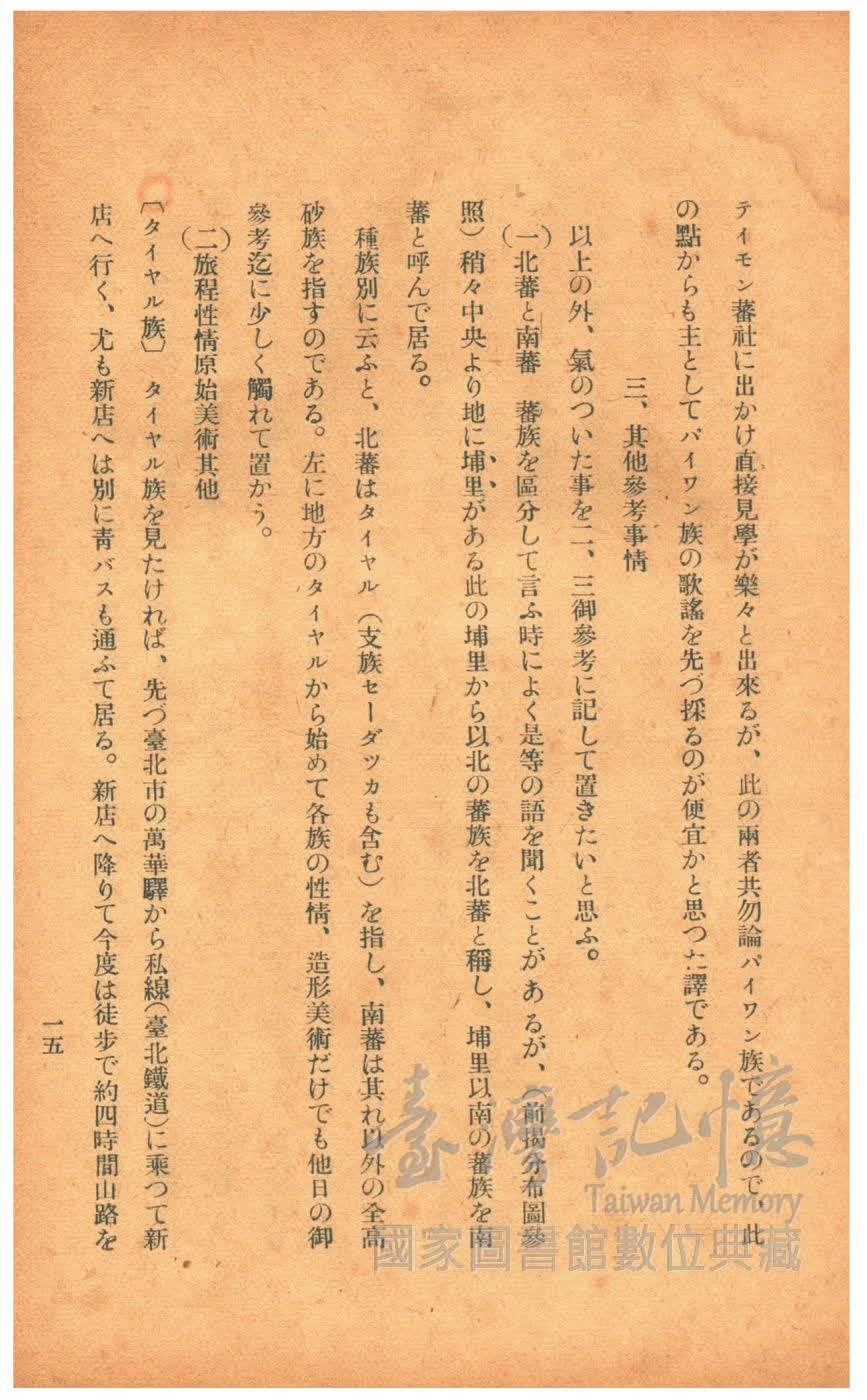 テイモン蕃社に出かけ直接見學が樂々と出來るが、此の兩者共勿論パイワン族であるので、此
の點からも主としてパイワン族の歌謠を先づ採るのが便宜かと思つた譯である。
三、其他參考事情
以上の外、氣のついた事を二、三御參考に記して置きたいと思ふ。
(一)北蕃と南蕃　蕃族を區分して言ふ時によく是等の語を聞くことがあるが、(前揭分布圖參
照)稍々中央より地に埔里がある此の埔里から以北の蕃族を北蕃と稱し、埔里以南の蕃族を南
蕃と呼んで居る。
種族別に云ふと、北蕃はタイヤル(支族セーダツカも含む)を指し、南蕃は其れ以外の全高
砂族を指すのである。左に地方のタイヤルから始めて各族の性情、造形美術だけでも他日の御
參考迄に少しく觸れて置かう。
(二)旅程性情原始美術其他
〔タイヤル族〕　タイヤル族を見たければ、先づ臺北市の萬華驛から私線(臺北鐵道)に乘つて新
店へ行く、尤も新店へは別に靑バスも通ふて居る。新店へ降りて今度は徒步で約四時間山路を
一五
臺灣記憶
Taiwan Memory
國家圖書館數位典藏